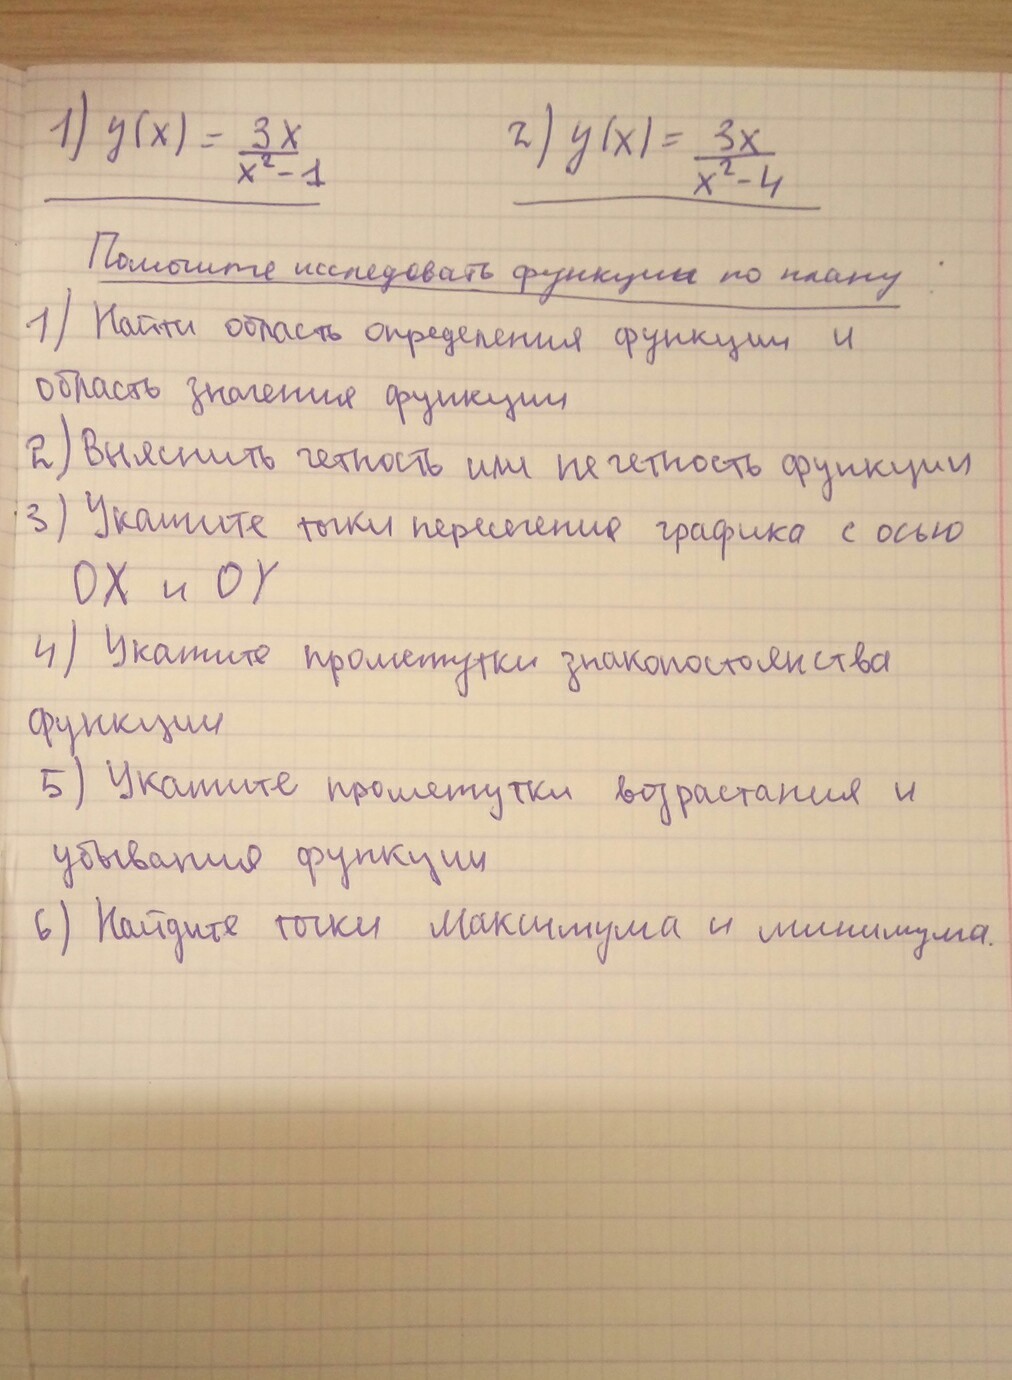 1) y(x) = 3x/(x²-1) 2) y(x) = 3x/(x²-4)
Помогите исследовать функции по плану:
1) Найти область определения функции и
область значения функции
2) Выяснить четность или нечетность функции
3) Укажите точки пересечения графика с осью
OX и OY
4) Укажите промежутки знакопостоянства
функции
5) Укажите промежутки возрастания и
убывания функции
6) Найдите точки максимума и минимума.